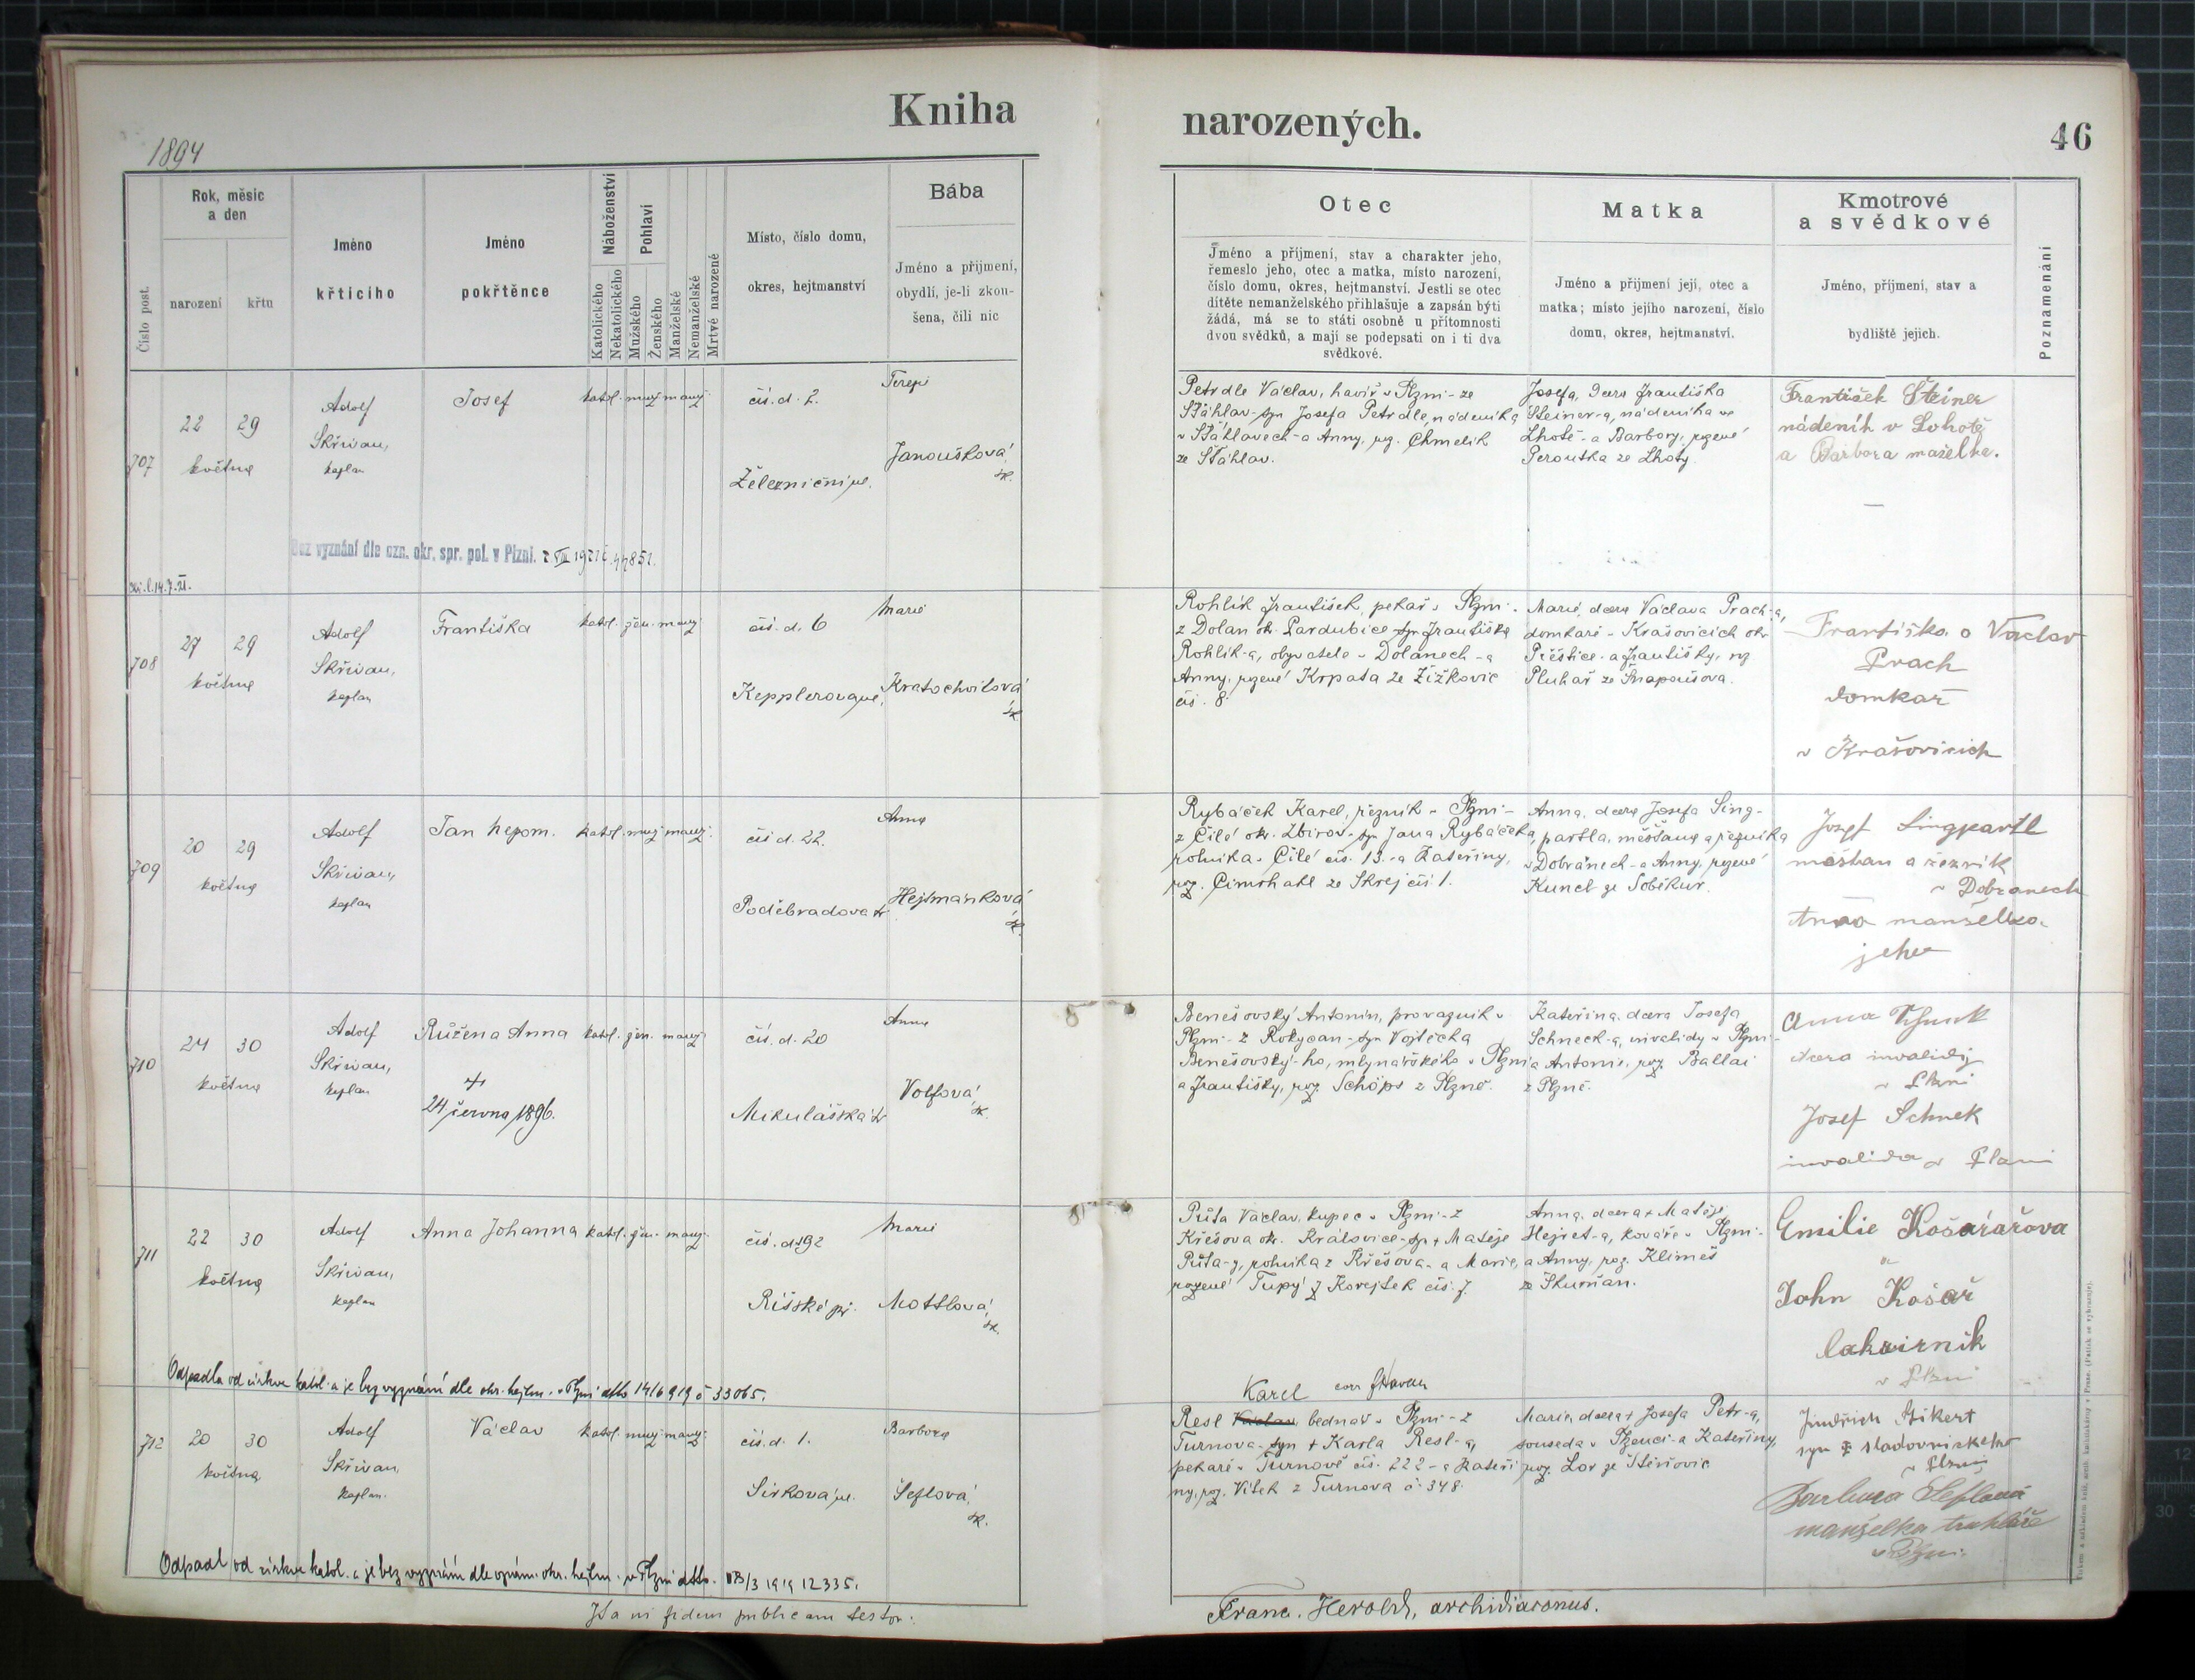 Kniha
narozených.
46
1894
Číslo post.
Rok, měsíc
a den
narození
křtu
Jméno
křtícího
Jméno
pokřtěnce
Náboženství
Katolického
Nekatolického
Pohlaví
Mužského
Ženského
Manželské
Nemanželské
Mrtvé narozené
Místo, číslo domu,
okres, hejtmanství
Bába
Jméno a příjmení,
obydlí, je-li zkou-
šena, čili nic
Otec
Jméno a příjmení, stav a charakter jeho,
řemeslo jeho, otec a matka, místo narození,
číslo domu, okres, hejtmanství. Jestli se otec
dítěte nemanželského přihlašuje a zapsán býti
žádá, má se to státi osobně u přítomnosti
dvou svědků, a mají se podepsati on i ti dva
svědkové.
Matka
Jméno a příjmení její, otec a
matka; místo jejího narození, číslo
domu, okres, hejtmanství.
Kmotrové
a svědkové
Jméno, příjmení, stav a
bydliště jejich.
Poznamenání
707
22 29
května
Adolf
Skřivan,
kaplan
Josef
katol. muž. manž.
čís. d. 2.
Železniční ul.
Terezi
Janoušková
zk.
Petrdle Václav, havíř v Plzni - ze
Šťáhlav - syn Josefa Petrdle, nádeníka
v Šťáhlavech - a Anny, roz. Chmelík
ze Šťáhlav.
Josefa, dcera Františka
Steiner-a, nádeníka ve
Lhotě - a Barbory, rozené
Peroutka ze Lhoty.
František Šteiner
nádeník v Lohotě
a Barbora maželka.
Bez vyznání dle ozn. okr. spr. pol. v Plzni.
708
27 29
května
Adolf
Skřivan,
kaplan
Františka
katol. žen. manž.
čís. d. 6
Kepplerova ul.
Marie
Kratochvílová
zk.
Rohlík František, pekař v Plzni -
z Dolan okr. Pardubice syn Františka
Rohlík-a, obyvatele v Dolanech - a
Anny, rozené Krpata ze Žižkovic
čís. 8.
Marie, dcera Václava Prach-a,
domkaře v Krašovicích okr.
Přeštice - a Františky, roz.
Pluhař ze Snapoušova.
Františka a Vaclav
Prach
domkař
v Krašovicich
709
20 29
května
Adolf
Skřivan,
kaplan
Jan Nepom.
katol. muž. manž.
čís. d. 22.
Poděbradova tř.
Anna
Hejtmánková
zk.
Rybáček Karel, řezník v Plzni -
z Čilé okr. Zbirov - syn Jana Rybáčeka,
rolníka v Čilé čís. 13. - a Kateřiny,
roz. Cimrhakl ze Skrej čís 1.
Anna, dcera Josefa Sing-
partla, měšťana a řezníka
v Dobřanech - a Anny, rozené
Kuncl ze Soběkur.
Josef Singpartl
měšťan a řezník
v Dobranech
Anna manželka
jeho
710
24 30
května
Adolf
Skřivan,
kaplan
Růžena Anna
+
24 června 1896.
katol. žen. manž.
čís. d. 20
Mikulášská tř.
Anna
Volfová
zk.
Benešovský Antonín, provazník v
Plzni - z Rokycan - syn Vojtěcha
Benešovský-ho, mlynářského v Plzni
a Františky, roz. Schöps z Plzně.
Kateřina, dcera Josefa
Schneck-a, invalidy v Plzni -
a Antonie, roz. Ballai
z Plzně.
Anna
dcera invalidy
v Plzni
Josef Schnek
invalida v Plzni
711
22 30
května
Adolf
Skřivan,
kaplan
Anna Johanna
katol. žen. manž.
čís. d. 92
Říšské př.
Marie
Mottlová
zk.
Půta Václav, kupec v Plzni - z
Křešova okr. Královice - syn + Matěje
Půta-y, rolníka z Křešova - a Marie,
rozené Tupý z Korejtek čís. 7.
Anna, dcera + Matěje
Hejret-a, kováře v Plzni -
a Anny, roz. Klimeš
ze Skurňan.
Emilie Košarářova
a
John Košař
lakýrník
v Plzni
Odpadla od církve katol. a je bez vyznání dle okr. hejtm. v Plzni dtto 14/6 919 č 33065.
712
20 30
května
Adolf
Skřivan,
kaplan.
Václav
katol. muž. manž.
čís. d. 1.
Sirková ul.
Barbora
Šeflová
zk.
Karel
Resl Václav, bednář v Plzni - z
Turnova - syn + Karla Resl-a,
pekaře v Turnově čís. 222 - a Kateři
ny, roz. Vítek z Turnova č. 348.
Marie, dcera + Josefa Petr-a,
souseda v Plzenci - a Kateřiny,
roz. Lor ze Štěnovic
Jindřich
syn sladovnického
v Plzni
Barbora Šeflová
manželka truhláře
v Plzni.
Odpadl od církve katol. a je bez vyznání dle oznám. okr. hejtm. v Plzni dtto. /3 1919 12335.
Ita in fidem publicam testor:
Franc. Herold, archidiaconus.